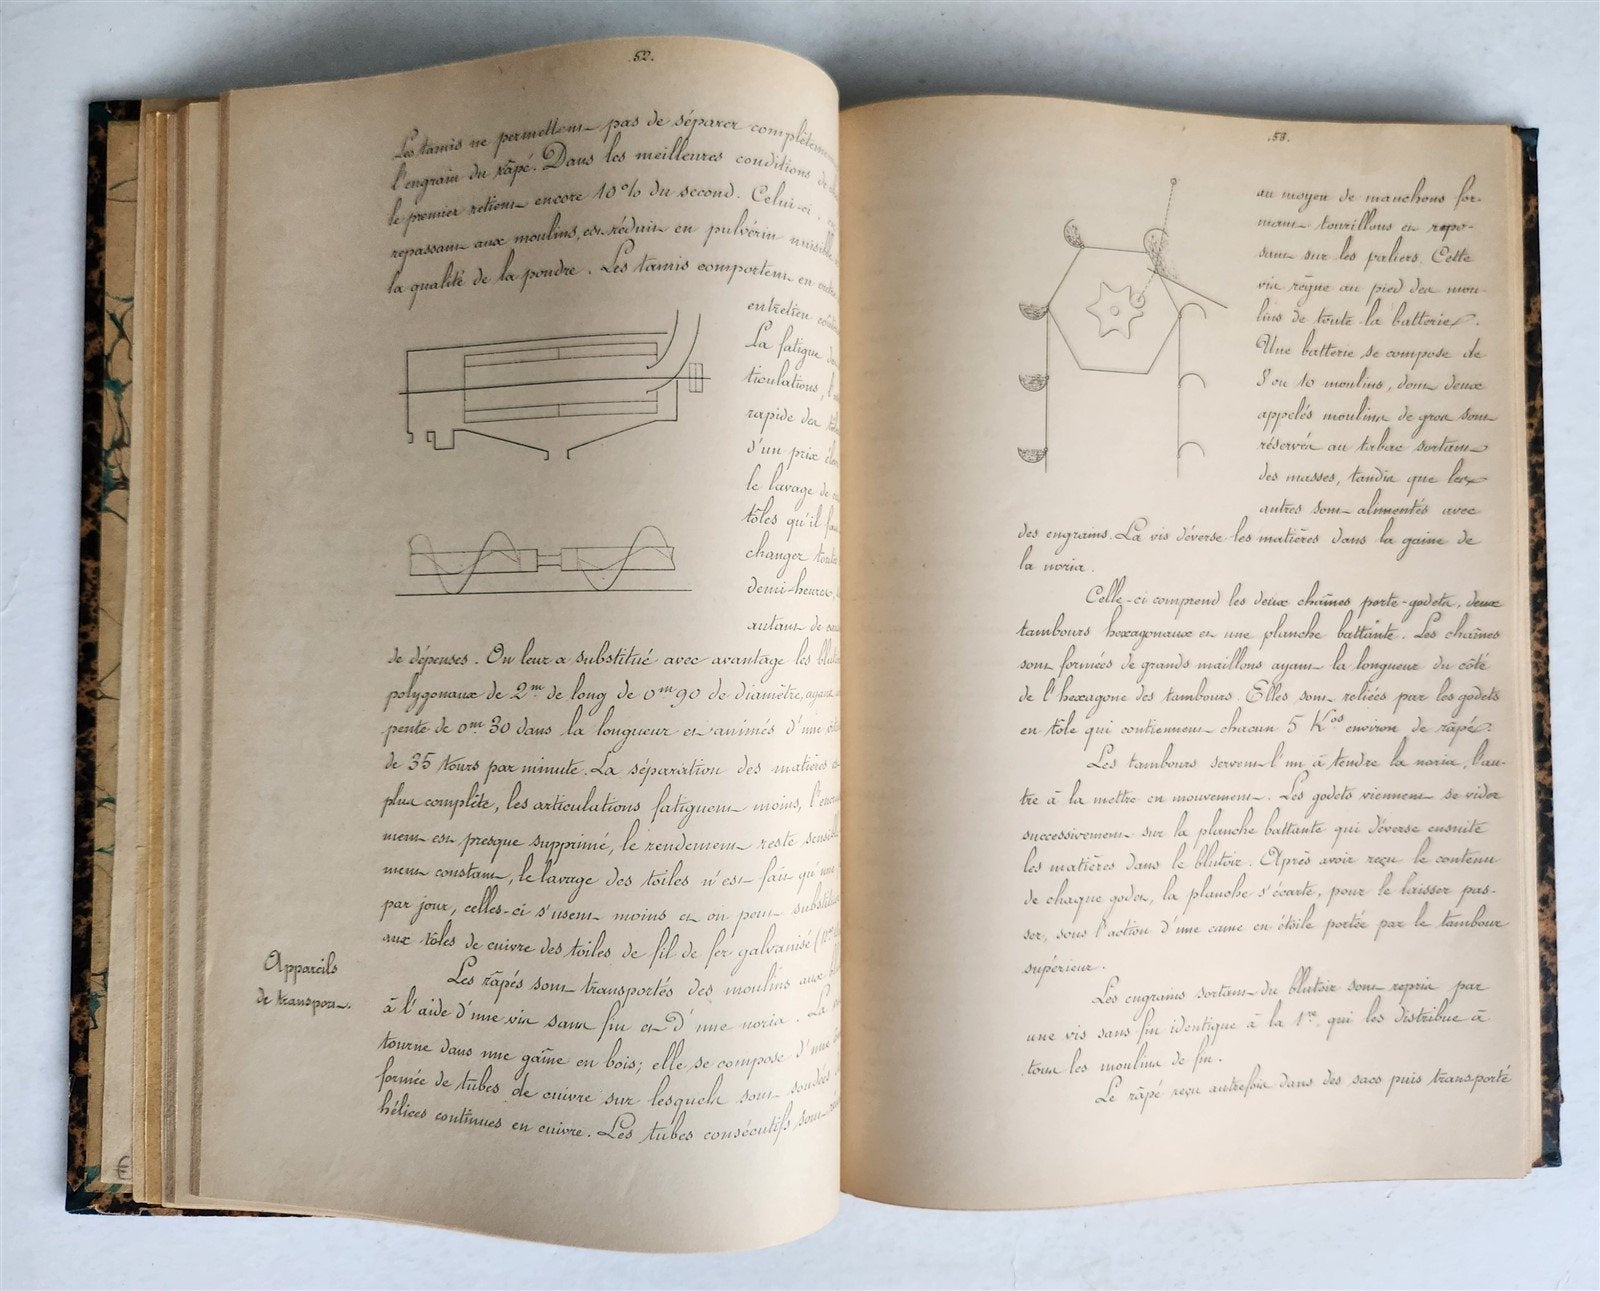 52.
Les tamis ne permettent pas de séparer complètement
l'engrain du râpé. Dans les meilleures conditions de
le premier retient encore 10% du second. Celui-ci, en
repassant aux moulins, est réduit en pulvérin nuisible
la qualité de la poudre. Les tamis comportent en outre
entretien
La fatigue
ticulations, l'
rapide des
d'un prix
le lavage de
tôles qu'il faut
changer toutes
demi-heures,
autant de
de dépenses. On leur a substitué avec avantage les
polygonaux de 2m de long de 0m90 de diamètre, ayant
pente de 0m30 dans la longueur et animés d'une
de 35 tours par minute. La séparation des matières
plus complète, les articulations fatiguent moins, l'
ment est presque supprimé, le rendement reste
ment constant, le lavage des toiles n'est fait qu'une
par jour, celles-ci s'usent moins et on peut
aux tôles de cuivre des toiles de fil de fer galvanisé
Appareils
de transport.
Les râpés sont transportés des moulins aux
à l'aide d'une vis sans fin et d'une noria. La
tourne dans une gaîne en bois; elle se compose d'une
formée de tubes de cuivre sur lesquels sont soudées
hélices continues en cuivre. Les tubes consécutifs sont
53.
au moyen de manchons for-
mant tourillons et repo-
sant sur les paliers. Cette
vis règne au pied des mou-
lins de toute la batterie.
Une batterie se compose de
8 ou 10 moulins, dont deux
appelés moulins de gros sont
réservés au tabac sortant
des masses, tandis que les
autres sont alimentés avec
des engrains. La vis déverse les matières dans la gaine de
la noria.
Celle-ci comprend les deux chaînes porte-godets, deux
tambours hexagonaux et une planche battante. Les chaînes
sont formées de grands maillons ayant la longueur du côté
de l'hexagone des tambours. Elles sont reliées par les godets
en tôle qui contiennent chacun 5 Kos environ de râpé.
Les tambours servent l'un à tendre la noria, l'au-
tre à la mettre en mouvement. Les godets viennent se vider
successivement sur la planche battante qui déverse ensuite
les matières dans le blutoir. Après avoir reçu le contenu
de chaque godet, la planche s'écarte, pour le laisser pas-
ser, sous l'action d'une came en étoile portée par le tambour
supérieur.
Les engrains sortant du blutoir sont repris par
une vis sans fin identique à la 1re, qui les distribue à
tous les moulins de fin.
Le râpé reçu autrefois dans des sacs puis transporté